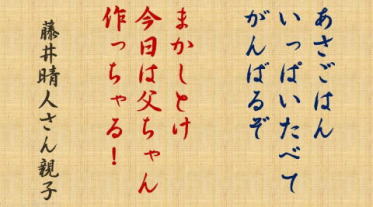 あさごはん
いっぱいたべて
がんばるぞ
まかしとけ
今日は父ちゃん
作っちゃる!
藤井晴人さん親子